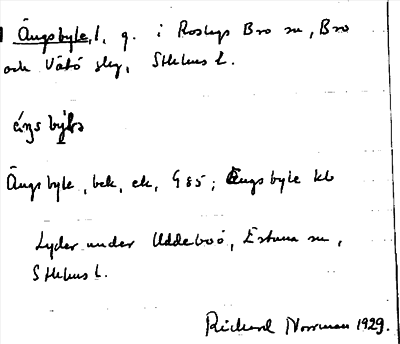 Ängsbyle, 1, g. i Roslags Bro sn, Bro
och Vätö slg, Sthlms l.
ängsbyle
Ängsbyle, bek, ek, G 85; Ängsbyle kb
Lyder under Uddeboö, Estuna sn,
Sthlms l.
Rickard Norrman 1929.